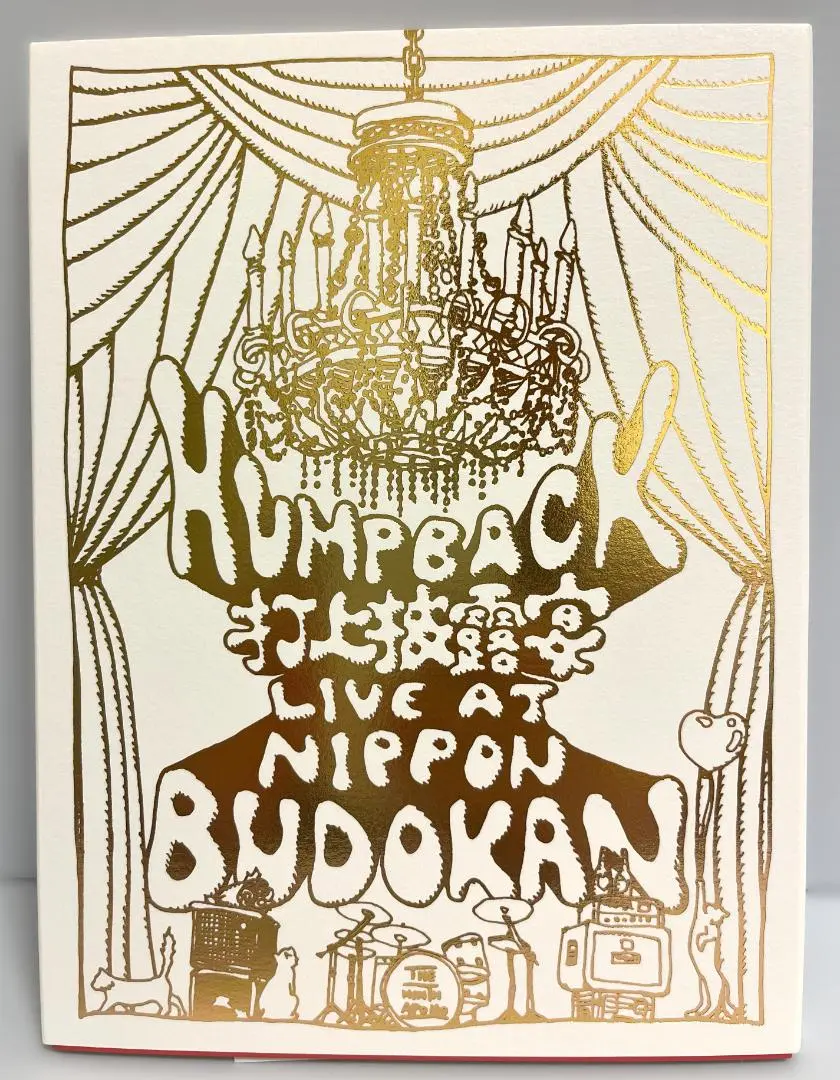 HUMPBACK
打上披露宴
LIVE AT
NIPPON
BUDOKAN
THE